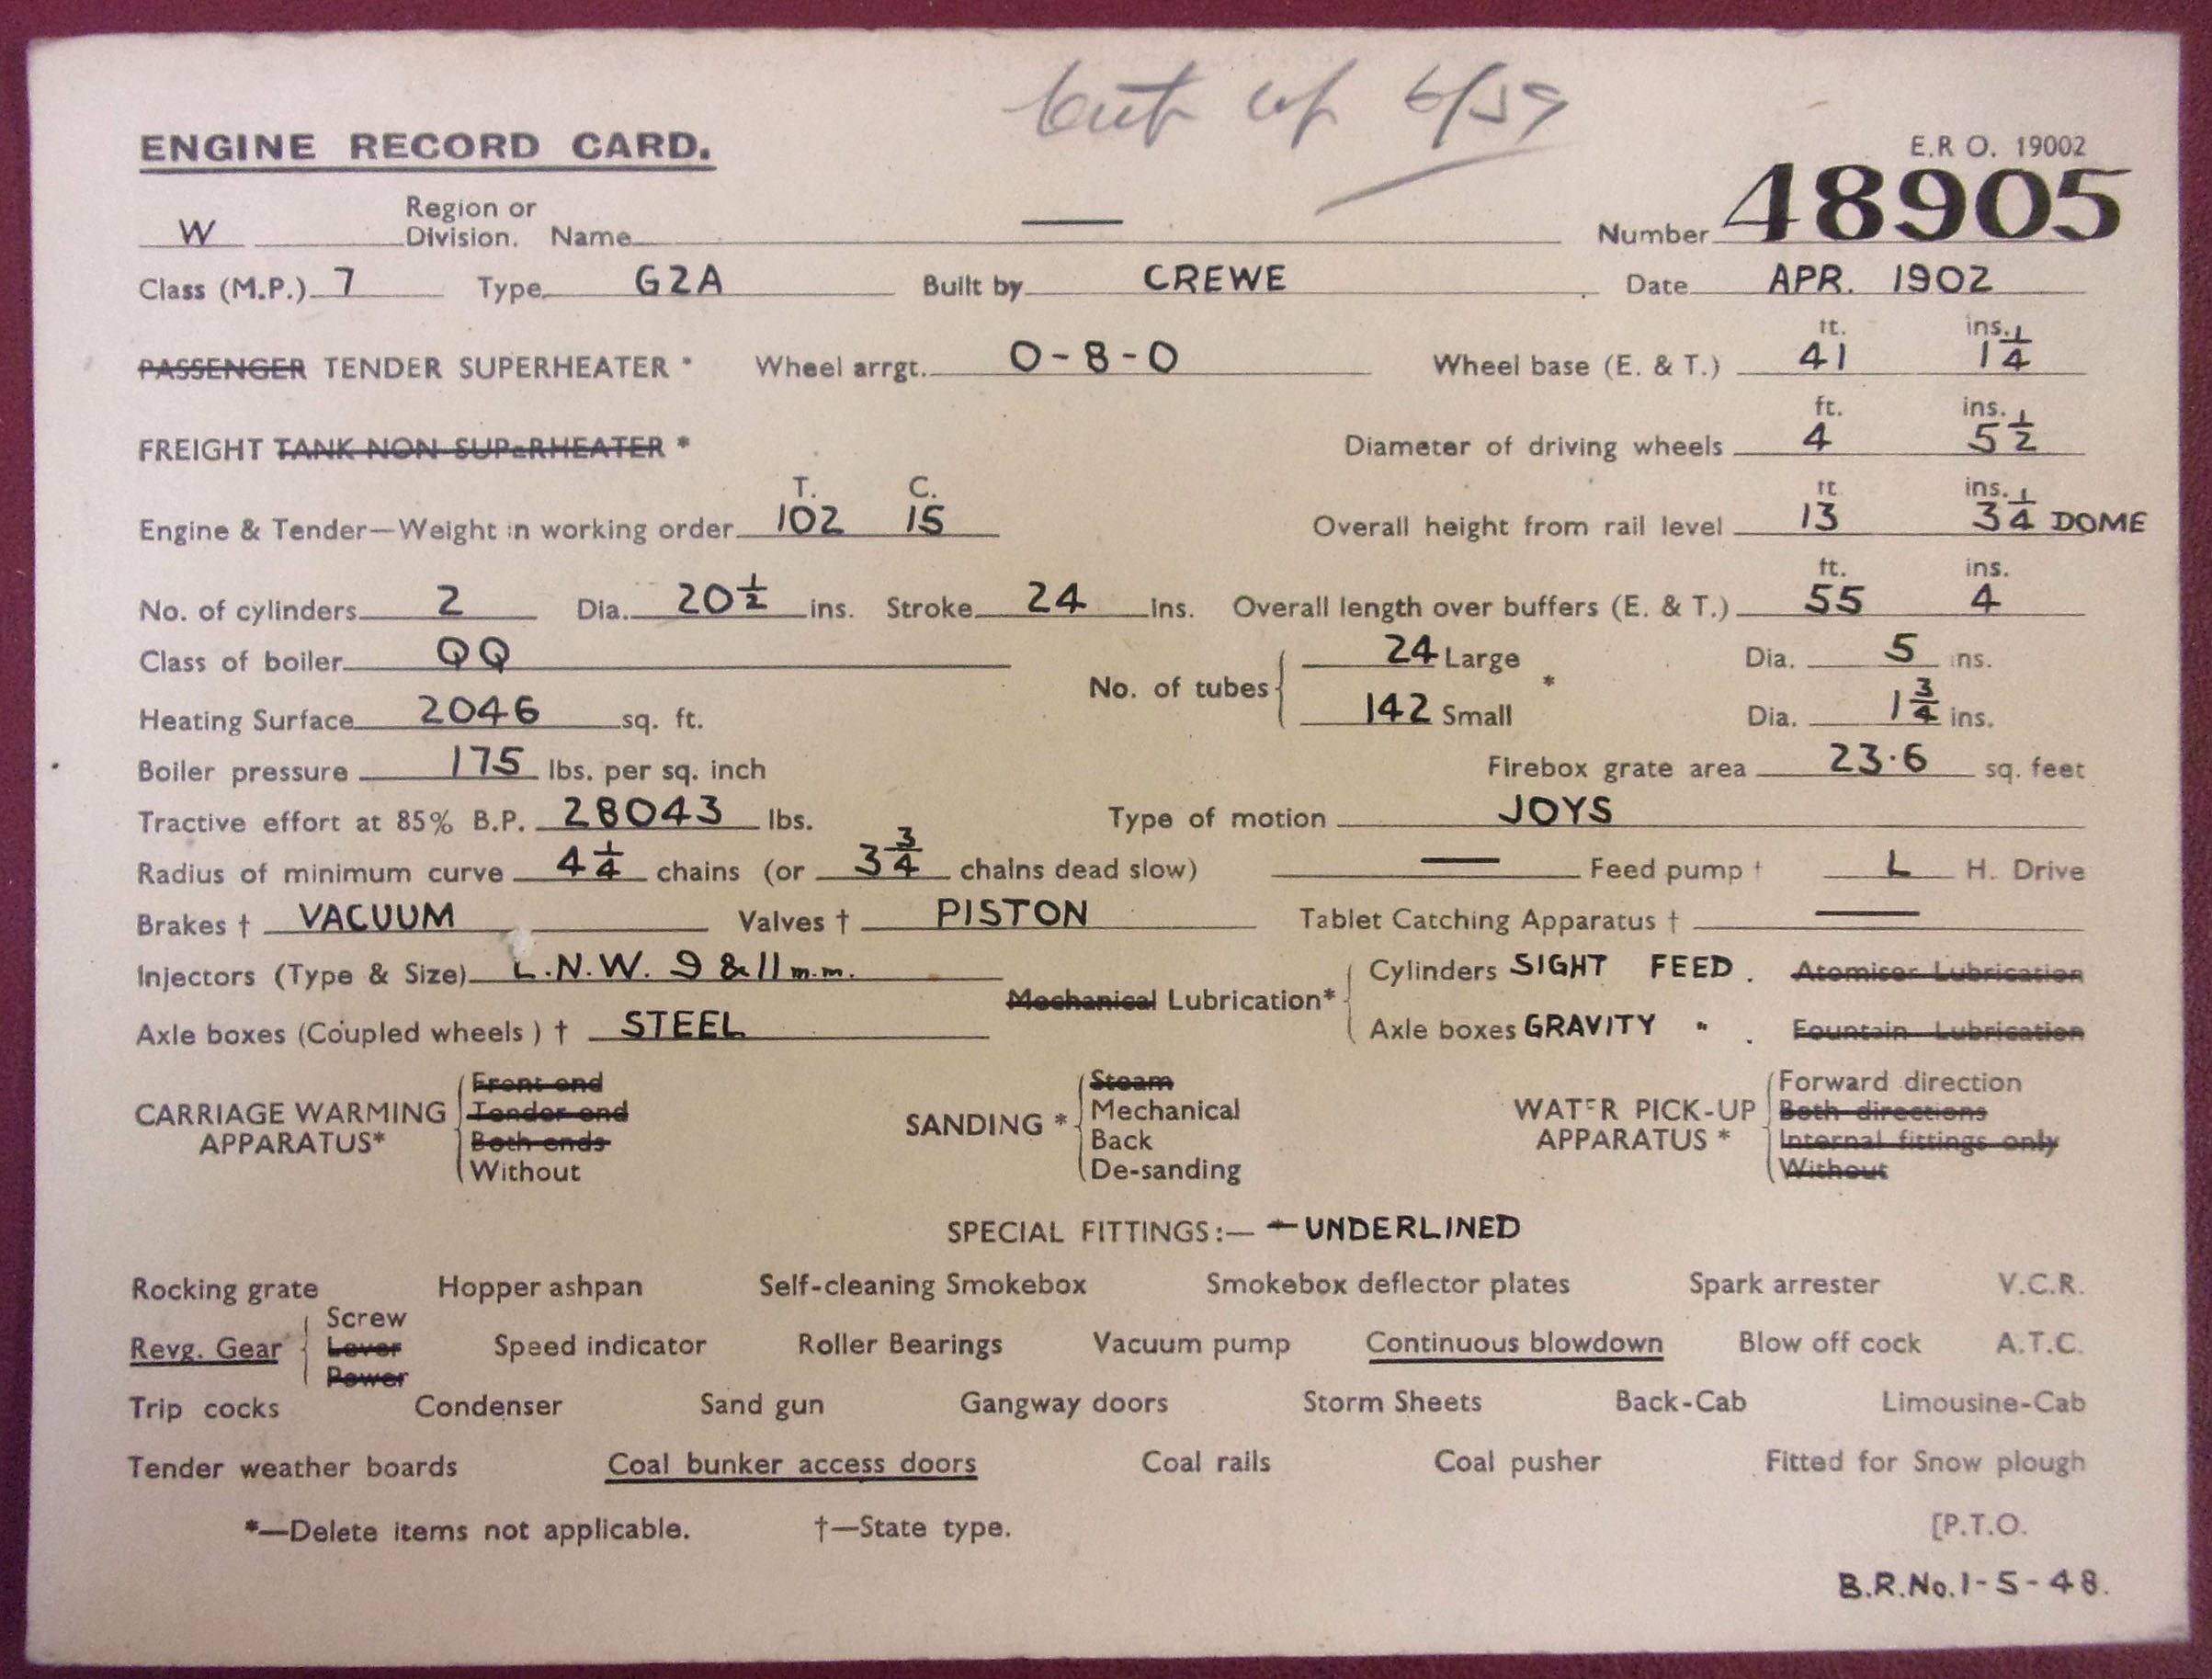 Cut up 6/59
ENGINE RECORD CARD.
E.R O. 19002
W Region or Division. Name — Number 48905
Class (M.P.) 7 Type G2A Built by CREWE Date APR. 1902
PASSENGER TENDER SUPERHEATER * Wheel arrgt. 0-8-0 Wheel base (E. & T.) ft. 41 ins. 1 1/4
FREIGHT TANK NON SUPERHEATER * Diameter of driving wheels ft. 4 ins. 5 1/2
Engine & Tender—Weight in working order T. 102 C. 15 Overall height from rail level ft 13 ins. 3 1/4 DOME
No. of cylinders 2 Dia. 20 1/2 ins. Stroke 24 Ins. Overall length over buffers (E. & T.) ft. 55 ins. 4
Class of boiler QQ No. of tubes 24 Large * Dia. 5 ins.
Heating Surface 2046 sq. ft. 142 Small Dia. 1 3/4 ins.
Boiler pressure 175 lbs. per sq. inch Firebox grate area 23·6 sq. feet
Tractive effort at 85% B.P. 28043 lbs. Type of motion JOYS
Radius of minimum curve 4 1/4 chains (or 3 3/4 chains dead slow) — Feed pump † L H. Drive
Brakes † VACUUM Valves † PISTON Tablet Catching Apparatus † —
Injectors (Type & Size) L.N.W. 9 & 11 m.m. Mechanical Lubrication* Cylinders SIGHT FEED . Atomiser Lubrication
Axle boxes (Coupled wheels ) † STEEL Axle boxes GRAVITY " . Fountain Lubrication
CARRIAGE WARMING APPARATUS* Front end Tender end Both ends Without
SANDING * Steam Mechanical Back De-sanding
WATER PICK-UP APPARATUS * Forward direction Both directions Internal fittings only Without
SPECIAL FITTINGS:— * UNDERLINED
Rocking grate Hopper ashpan Self-cleaning Smokebox Smokebox deflector plates Spark arrester V.C.R.
Revg. Gear Screw Lever Power Speed indicator Roller Bearings Vacuum pump Continuous blowdown Blow off cock A.T.C.
Trip cocks Condenser Sand gun Gangway doors Storm Sheets Back-Cab Limousine-Cab
Tender weather boards Coal bunker access doors Coal rails Coal pusher Fitted for Snow plough
*—Delete items not applicable. †—State type. [P.T.O.
B.R.No.1-5-48.